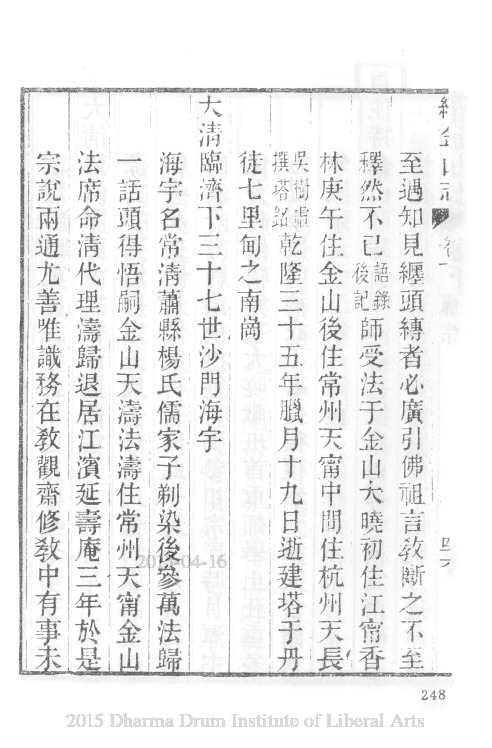 續金山志 卷 四六
至遇知見纏頭縛者必廣引佛祖言教斷之不至
釋然不已語錄後記師受法于金山大曉初住江甯香
林庚午住金山後住常州天甯中間住杭州天長
吳樹虛撰塔銘乾隆三十五年臘月十九日逝建塔于丹
徒七里甸之南崗
大清臨濟下三十七世沙門海宇
海宇名常清蕭縣楊氏儒家子剃染後參萬法歸
一話頭得悟嗣金山天濤法濤住常州天甯金山
法席命清代理濤歸退居江濱延壽庵三年於是
宗說兩通尤善唯識務在教觀齋修教中有事未
248
2015 Dharma Drum Institute of Liberal Arts